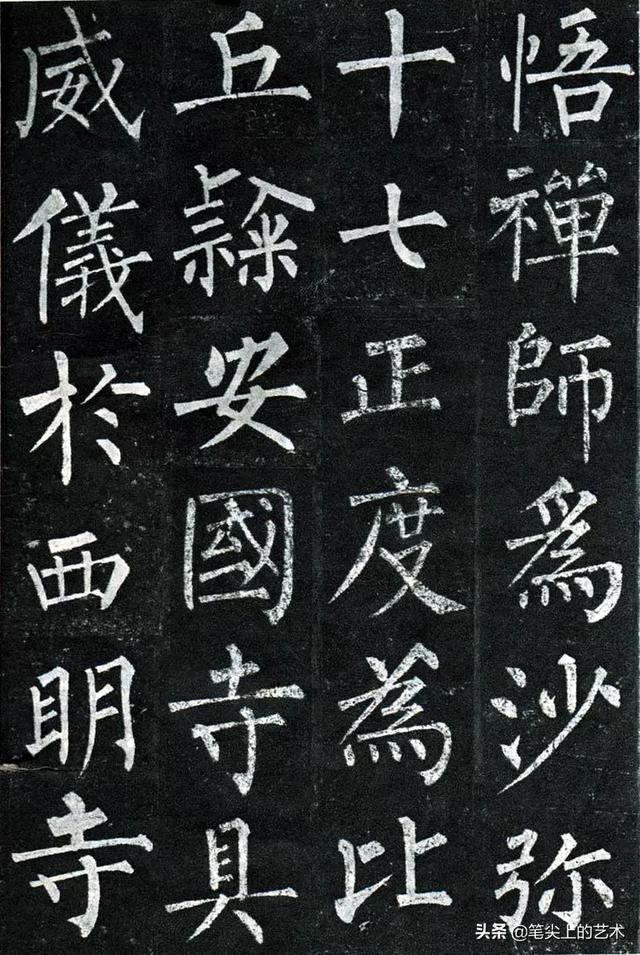 悟禪師為沙弥
十七正度為比
丘隸安國寺具
威儀於西明寺
头条 @笔尖上的艺术